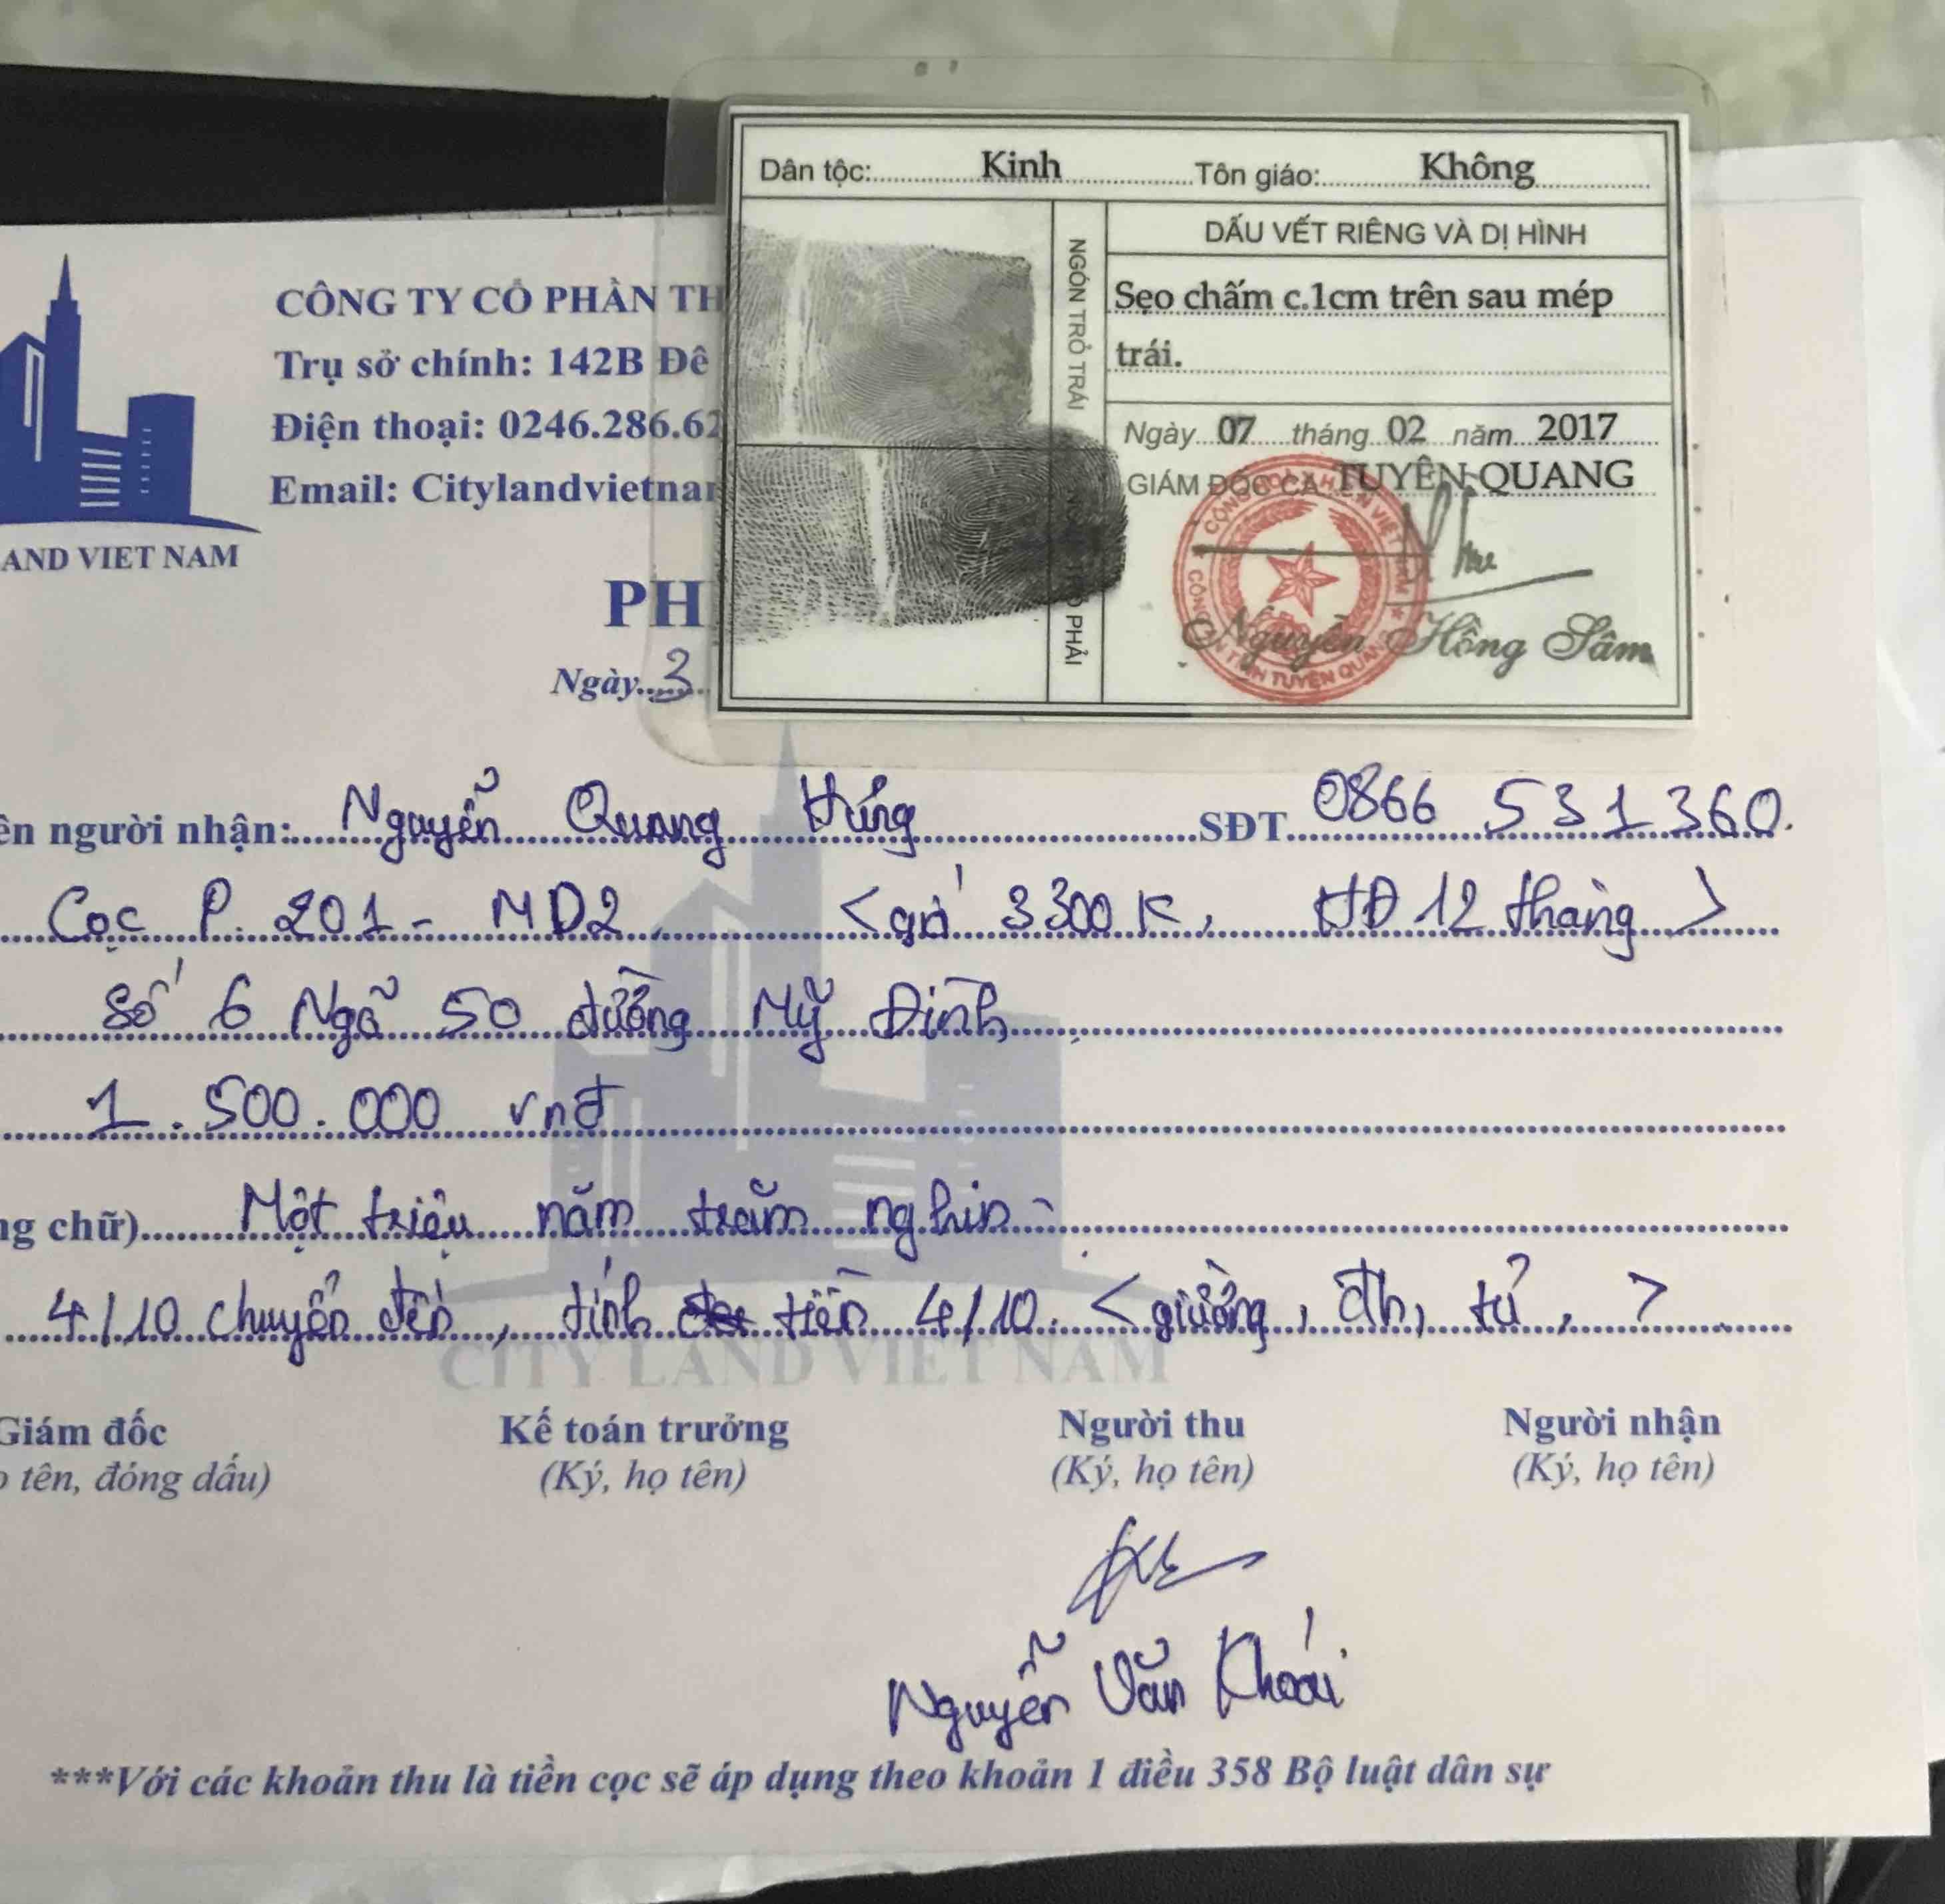 Dân tộc: Kinh Tôn giáo: Không
DẤU VẾT RIÊNG VÀ DỊ HÌNH
NGÓN TRỎ TRÁI
Sẹo chấm c.1cm trên sau mép
trái.
Ngày 07 tháng 02 năm 2017
GIÁM ĐỐC CA TUYÊN QUANG
PHẢI
CÔNG AN TỈNH TUYÊN QUANG
Nguyễn Hồng Sâm
CÔNG TY CỔ PHẦN TH
Trụ sở chính: 142B Đê
Điện thoại: 0246.286.62
Email: Citylandvietnam
AND VIET NAM
PH
Ngày 3
ên người nhận: Nguyễn Quang Hưng SĐT 0866 531 360.
Cọc P. 201 - MD2 < giá 3300K, HĐ 12 tháng >
Số 6 Ngõ 50 đường Mỹ Đình
1.500.000 vnđ
ng chữ) Một triệu năm trăm nghìn
4/10 chuyển đến, tính tiền 4/10. < giường, đh, tủ, >
CITY LAND VIET NAM
Giám đốc Kế toán trưởng Người thu Người nhận
ọ tên, đóng dấu) (Ký, họ tên) (Ký, họ tên) (Ký, họ tên)
Nguyễn Văn Khoái
***Với các khoản thu là tiền cọc sẽ áp dụng theo khoản 1 điều 358 Bộ luật dân sự